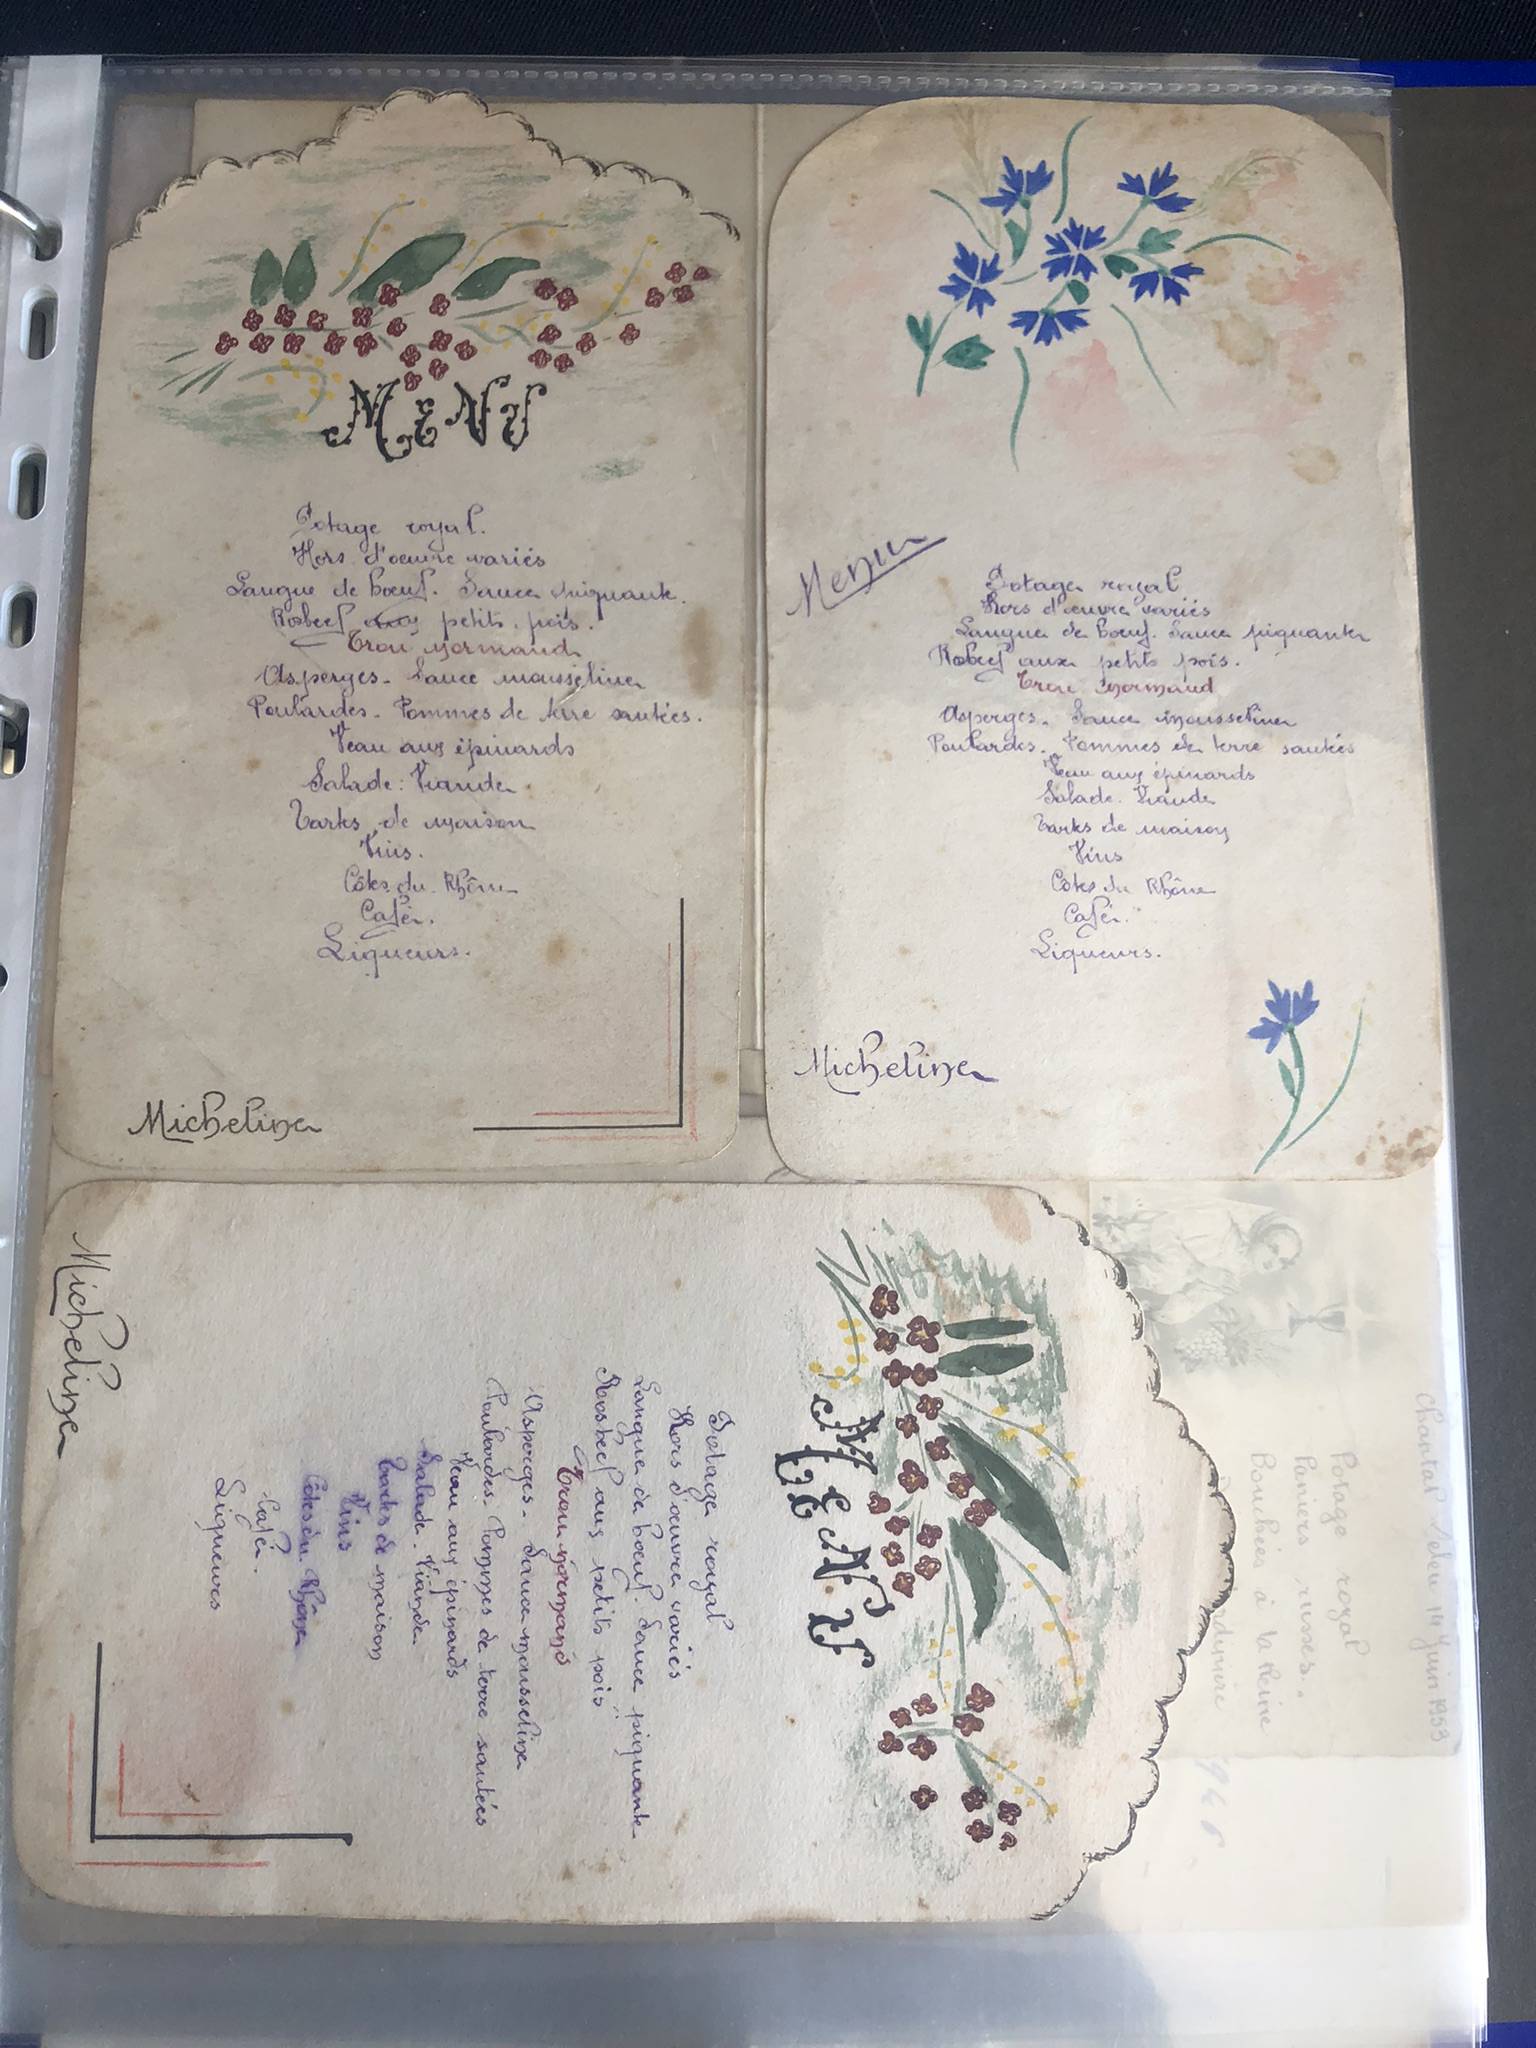 MENU
Potage royal.
Hors d'oeuvre variés
Langue de boeuf. Sauce piquante.
Rosbeef aux petits pois.
Trou normand
Asperges. Sauce mousseline
Poulardes. Pommes de terre sautées.
Veau aux épinards
Salade. Viande
Tartes de maison
Vins.
Côtes du Rhône
Café.
Liqueurs.
Micheline
Menu
Potage royal
Hors d'oeuvre variés
Langue de boeuf. Sauce piquante
Robeef aux petits pois.
Trou normand
Asperges. Sauce mousseline
Poulardes. Pommes de terre sautées
Veau aux épinards
Salade. Viande
Tartes de maison
Vins
Côtes du Rhône
Café.
Liqueurs.
Micheline
MENU
Potage royal
Hors d'oeuvre variés
Langue de boeuf. Sauce piquante
Rosbeef aux petits pois.
Trou normand
Asperges. Sauce mousseline
Poulardes. Pommes de terre sautées
Veau aux épinards
Salade. Viande
Tartes de maison
Vins
Côtes du Rhône
Café.
Liqueurs
Micheline
Chantal 14 Juin 1953
Potage royal
Paniers russes.
Bouchées à la Reine